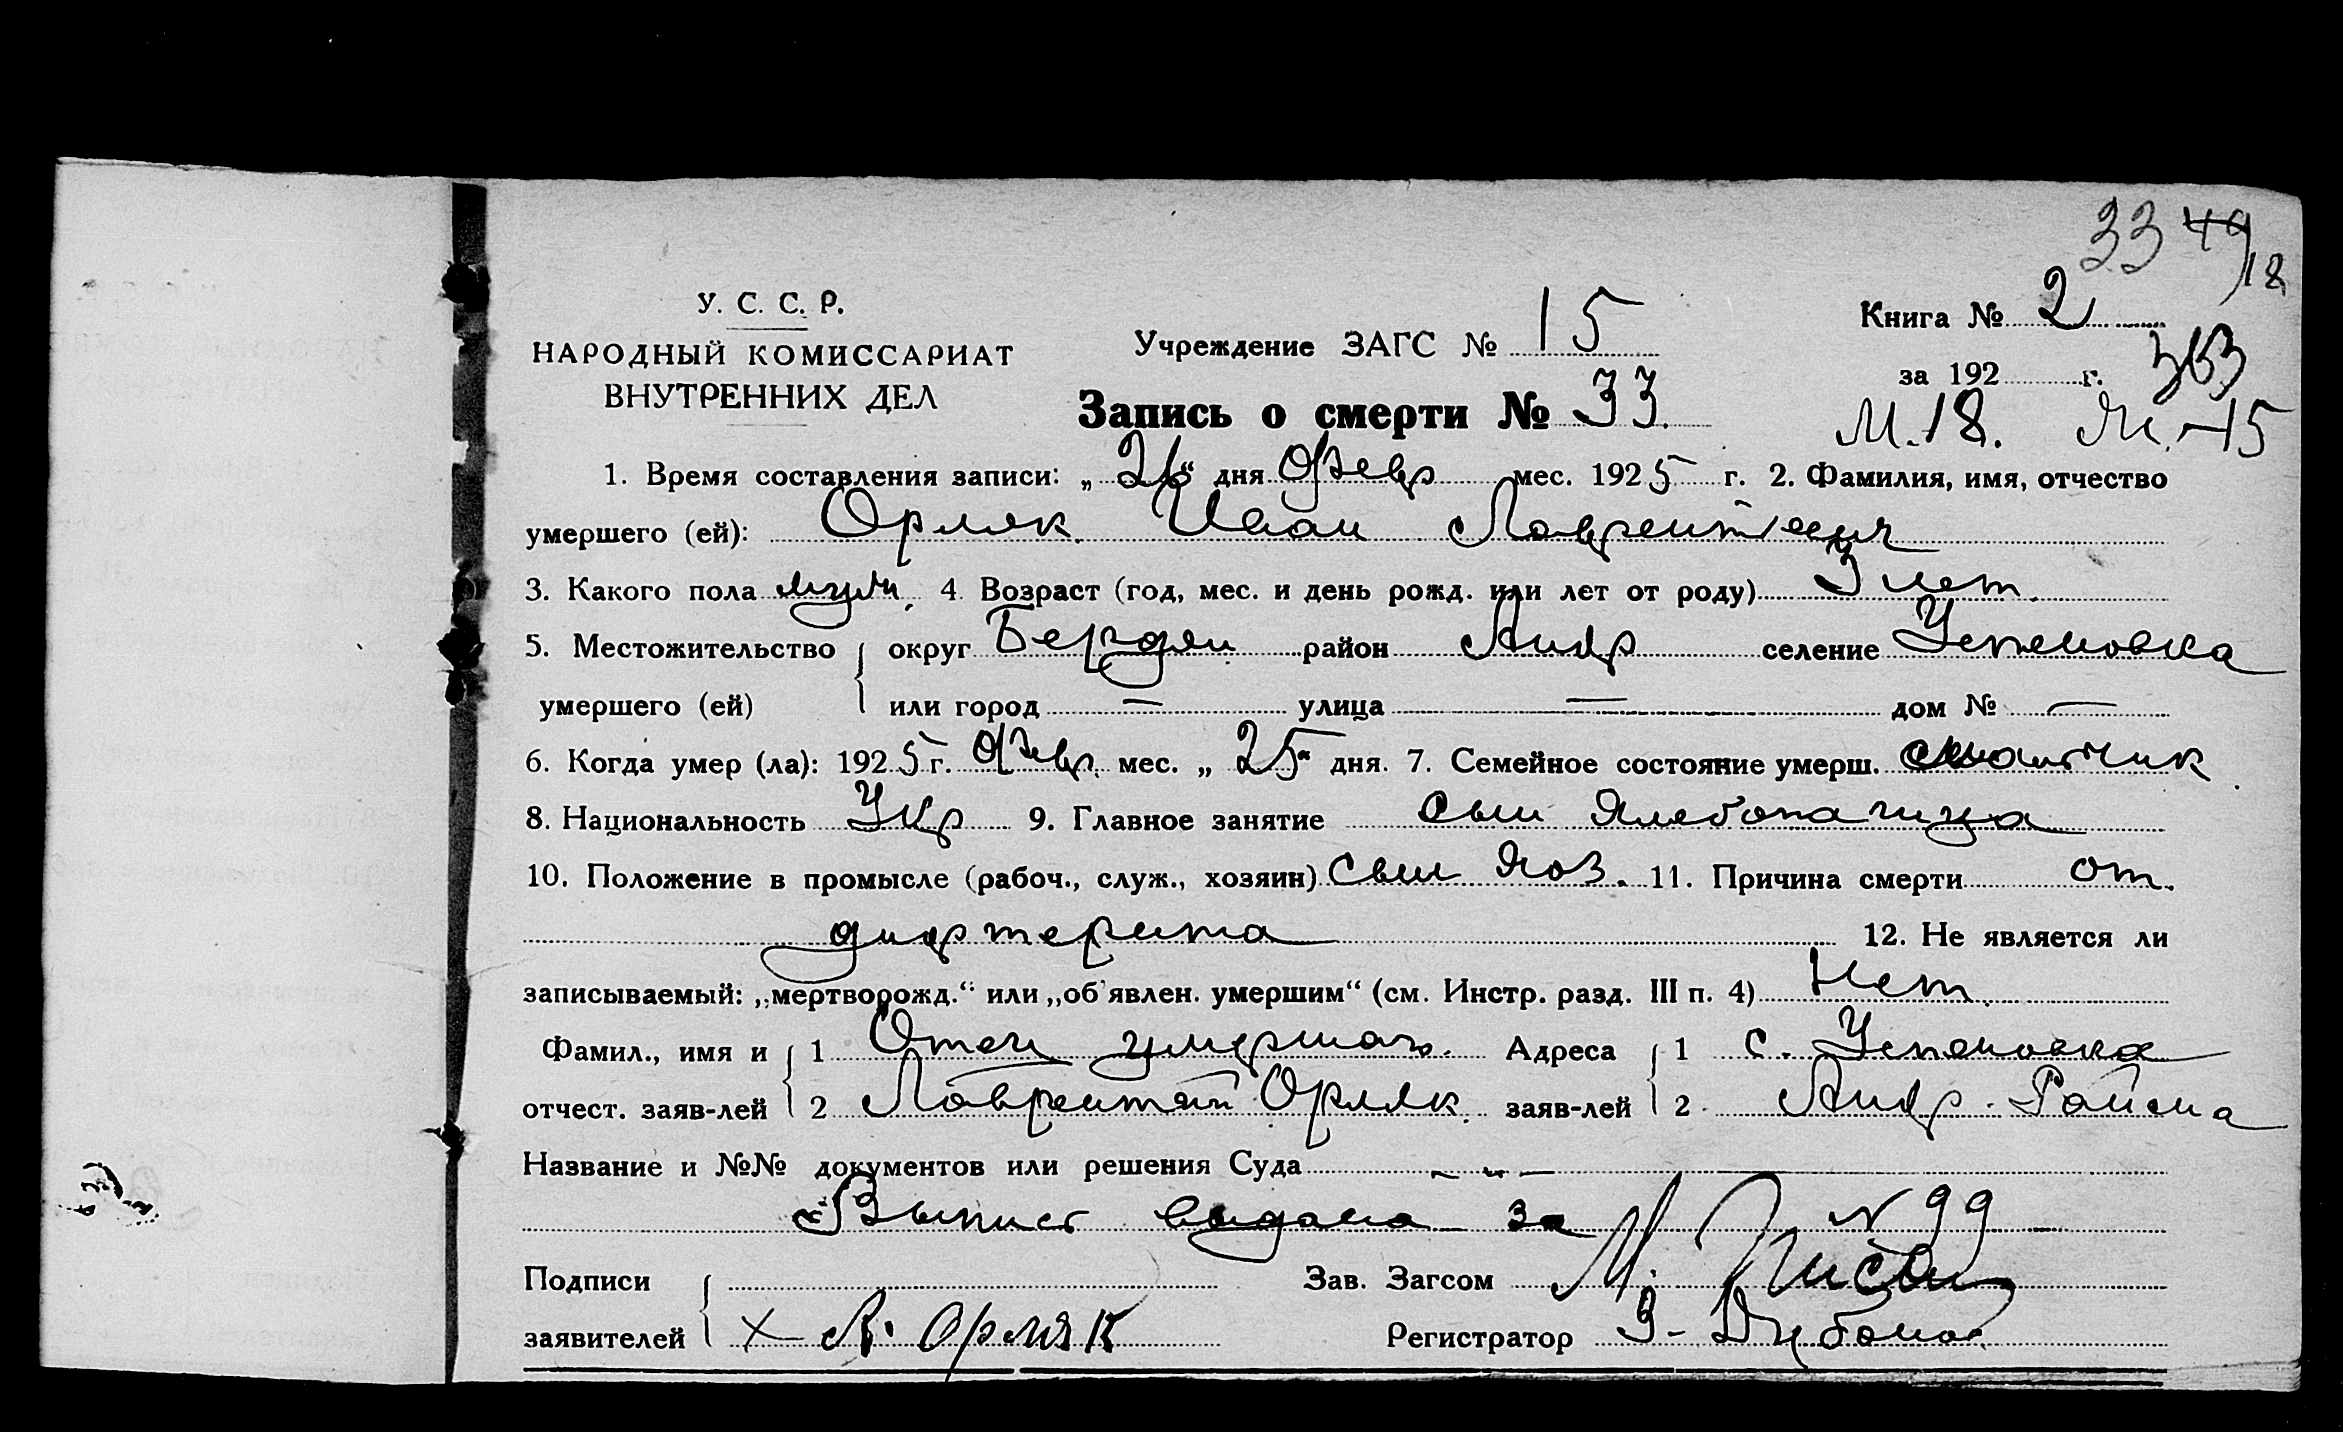 33 49/18
У. С. С. Р.
НАРОДНЫЙ КОМИССАРИАТ
ВНУТРЕННИХ ДЕЛ
Учреждение ЗАГС № 15
Книга № 2
за 192 г.
Запись о смерти № 33.
М. 18. М. - 15
1. Время составления записи: „26“ дня Февр мес. 1925 г. 2. Фамилия, имя, отчество
умершего (ей): Орляк Иван Лаврентьевич
3. Какого пола муж. 4. Возраст (год, мес. и день рожд. или лет от роду) 3 лет.
5. Местожительство округ Бердян район Андр селение Успеновка
умершего (ей) или город — улица — дом № —
6. Когда умер (ла): 1925 г. Февр. мес. „25“ дня. 7. Семейное состояние умерш.
8. Национальность Укр 9. Главное занятие Сын Хлебопашца
10. Положение в промысле (рабоч., служ., хозяин) Сын Хоз. 11. Причина смерти от
дифтерита 12. Не является ли
записываемый: „мертворожд.“ или „об'явлен. умершим“ (см. Инстр. разд. III п. 4) Нет.
Фамил., имя и 1 Отец умершаго. Адреса 1 с. Успеновка
отчест. заяв-лей 2 Лаврентий Орляк. заяв-лей 2 Андр. Района
Название и №№ документов или решения Суда — „ —
Выпись выдана за N 99
Подписи Зав. Загсом М.
заявителей х Л. Орляк Регистратор